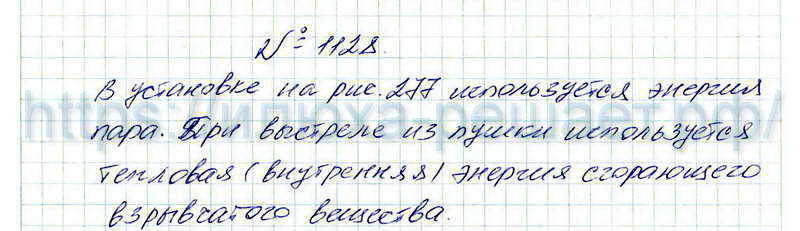 № 1128.
В установке на рис. 277 используется энергия
пара. При выстреле из пушки используется
тепловая (внутренняя) энергия сгорающего
взрывчатого вещества.